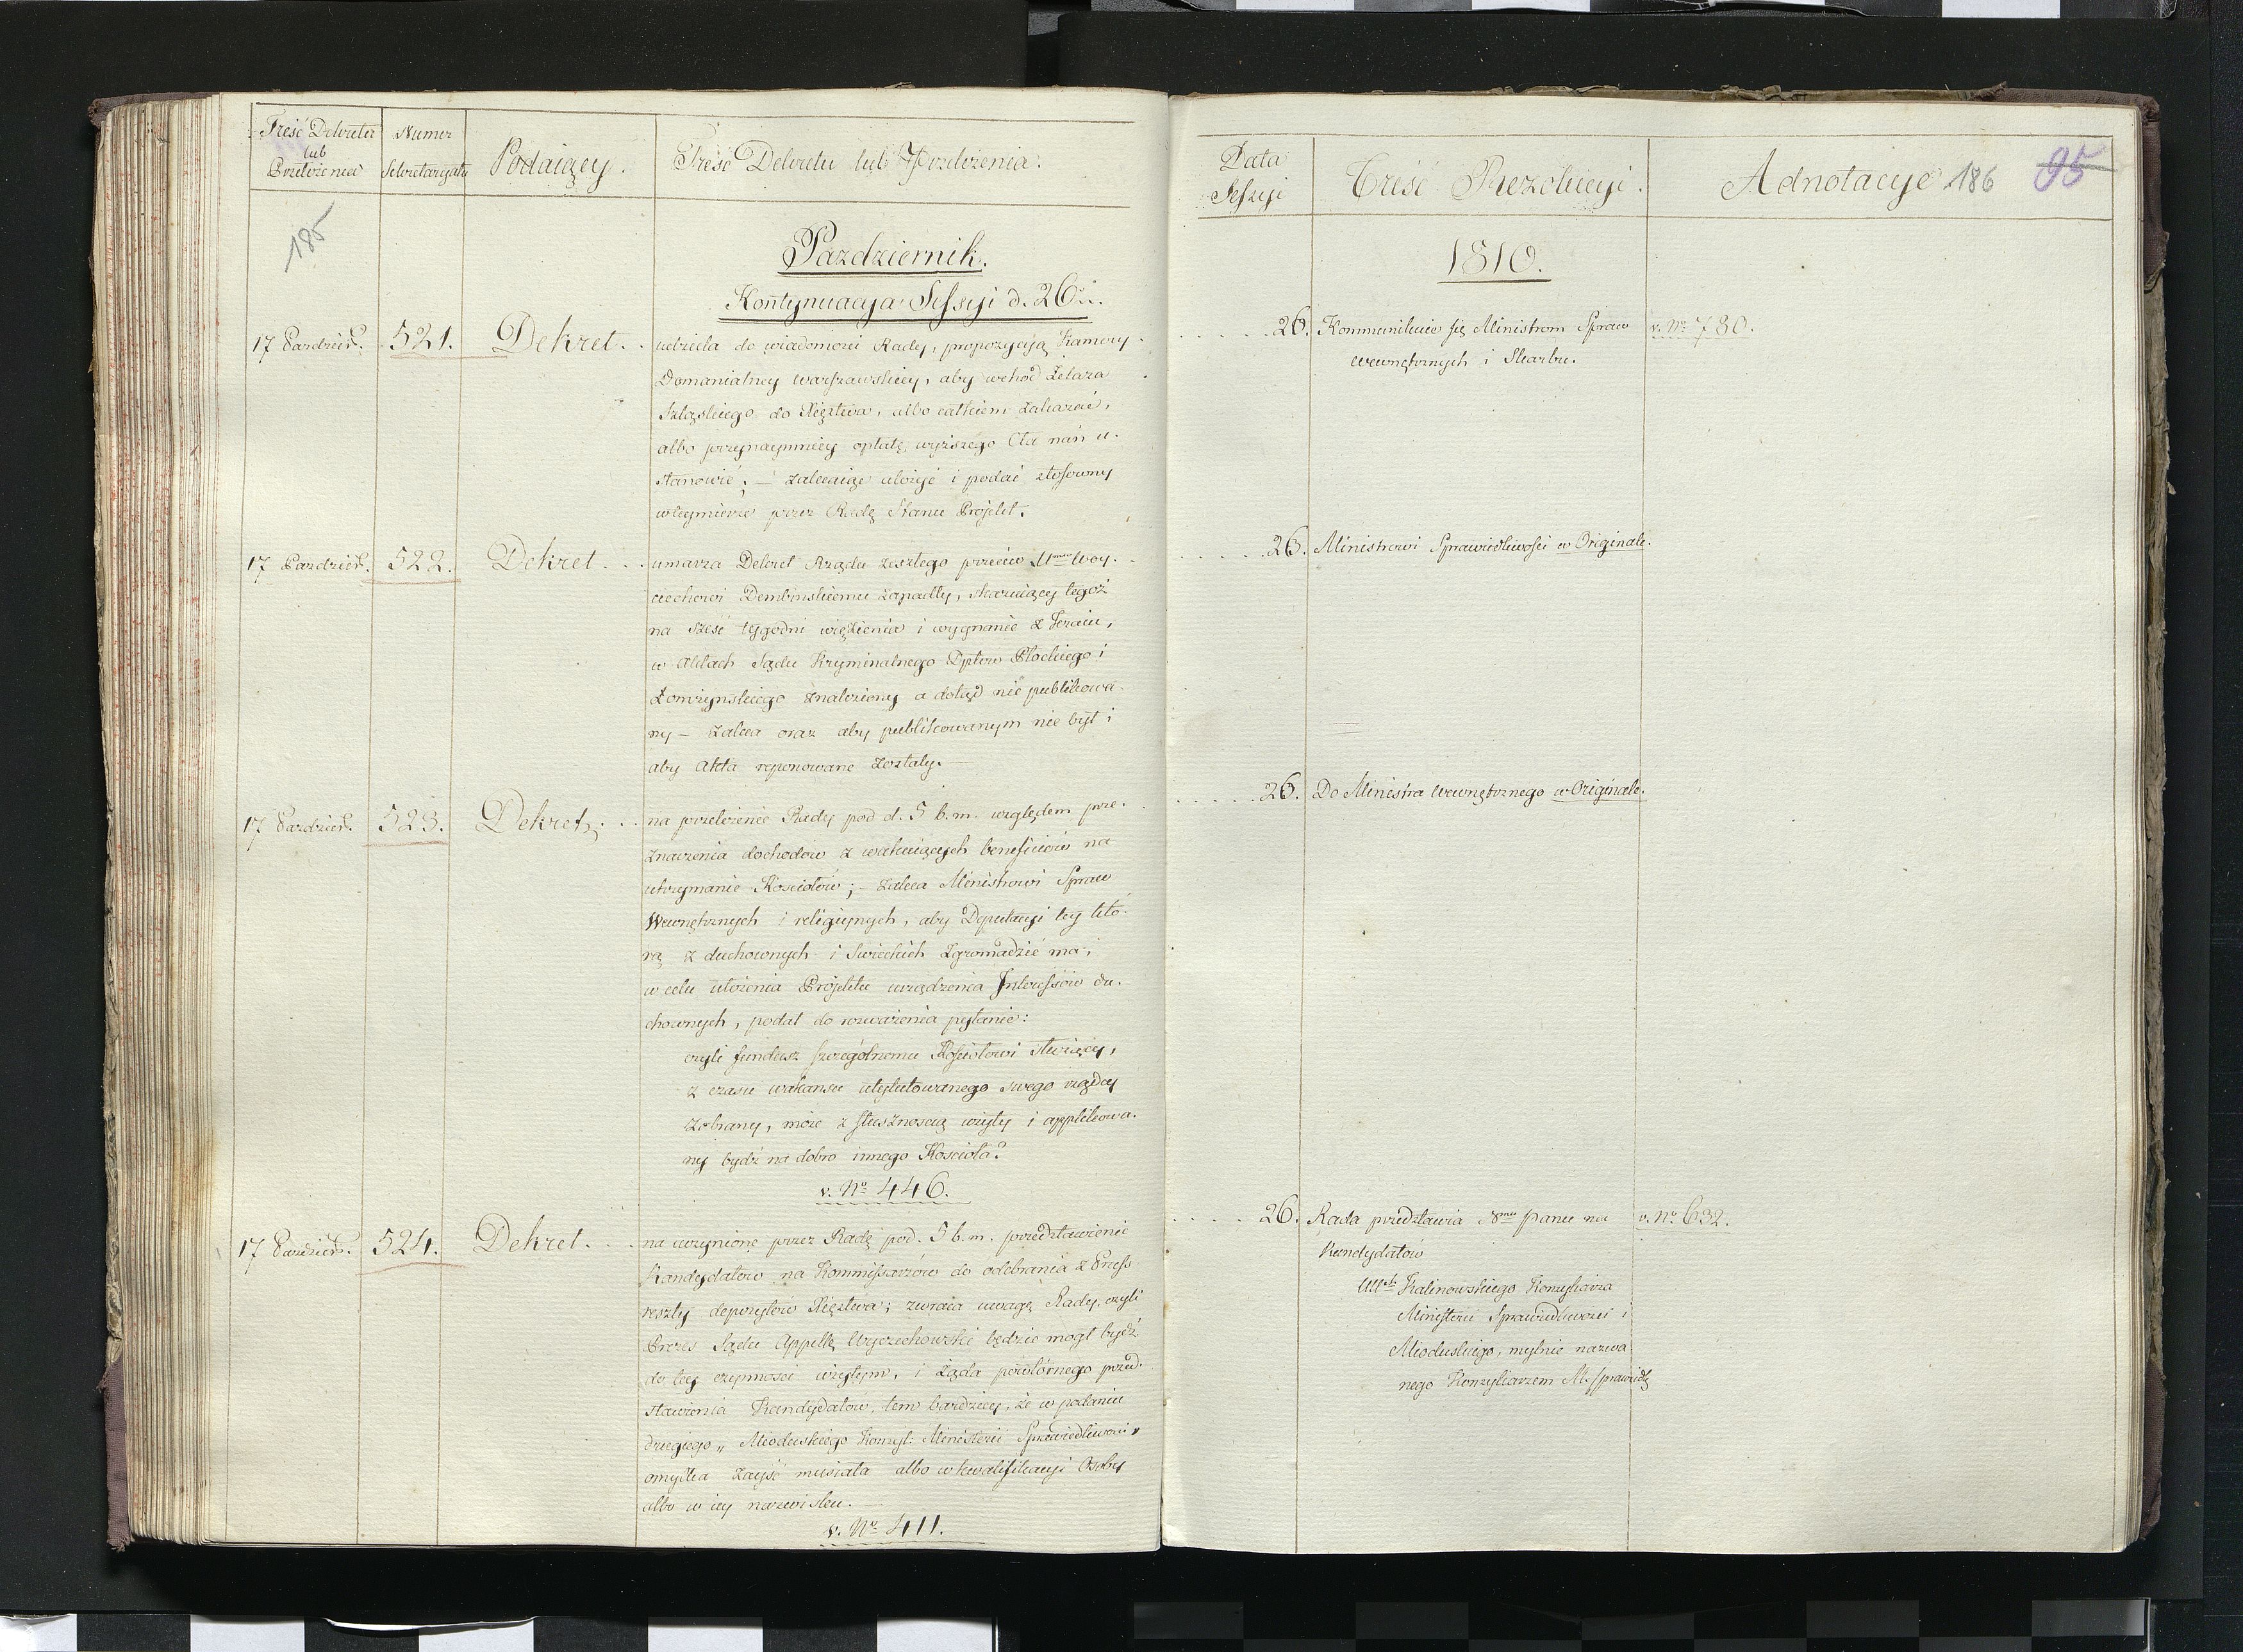 Treść Dekretu
lub
Przełożenia
Numer
Sekretaryatu
Podaiący.
Treść Dekretu lub Przełożenia.
185
Pazdziernik.
Kontynuacya Sessyi d. 26..
17 Pazdzier. 521. Dekret. . udziela do wiadomości Rady, propozycyją Kamery
Domanialney warszawskiey, aby wchód żelaza
Szląskiego do Xięztwa, albo całkiem zakazać,
albo przynaymniey opłatę wyższego Cła nań u-
stanowić; – zalecaiąc ułożyć i podać stosowny
wteymierze przez Radę Stanu Projekt.
17 Pazdzier. 522. Dekret. . . umarza Dekret Rządu zeszłego przeciw Woy-
ciechowi Dembinskiemu zapadły, skazuiący tegoż
na sześć tygodni więzienia i wygnanie z kraiu,
w aktach Sądu Kryminalnego Dptow Płockiego i
Łomżynskiego znaleziony a dotąd nie publikowa-
ny – zaleca oraz aby publikowanym nie był i
aby akta reponowane zostały. –
17 Pazdzier. 523. Dekret. . . na przełożenie Rady pod d. 5 b. m. względem prze-
znaczenia dochodów z wakuiących beneficiów na
utrzymanie Kościołów; – zaleca Ministrowi Spraw
Wewnętrznych i religiynych, aby Deputacyi tey któ-
rą z duchownych i świeckich zgromadzić ma,
w celu ułożenia Projektu urządzenia Interessów du-
chownych, podał do rozważenia pytanie:
czyli fundusz szczególnemu Kościołowi służący,
z czasu wakansu utytułowanego swego rządcy
zebrany, może z słusznością użyty i applikowa-
ny bydź na dobro innego Kościoła?
v. Nº 446.
17 Pazdzier. 524. Dekret. . na uczynione przez Radę pod. 5 b. m. przedstawienie
Kandydatów na Kommissarzów do odebrania z Pruss
reszty depozytów Xięztwa; zwraca uwagę Rady, czyli
Prezes Sądu Appell. Wyczechowski będzie mógł bydź
do tey czynności użytym, i żąda powtórnego przed-
stawienia Kandydatów, tem bardziey, że w podaniu
drugiego „ Mioduskiego Konsyl: Ministerii Sprawiedliwości „
omyłka zayść musiała albo w kwalifikacyi Osoby
albo w iey nazwisku.
v. Nº 411.
Data
Sessyi
Treść Rezolucyi.
Adnotacye 186 95
1810.
. . . . . 26. Kommunikuie się Ministrom Spraw v. Nº 780.
wewnętrznych i Skarbu.
. . . . . 26. Ministrowi Sprawiedliwości w Originale.
. . . . . 26. Do Ministra wewnętrznego w Originale.
. . . . 26. Rada przedstawia Panu na v. Nº 632.
Kandydatów
Kalinowskiego Konsyliarza
Ministerii Sprawiedliwości i
Mioduskiego, mylnie nazwa
nego Konsyliarzem M. Sprawiedl.